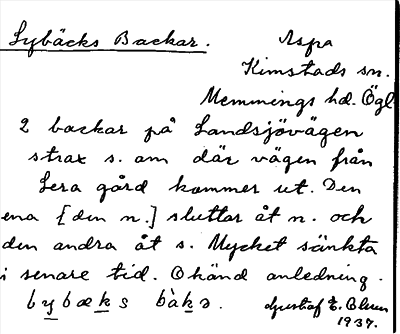 Lybäcks Backar. Aspa
Kimstads sn.
Memmings hd. Ögl
2 backar på Landsjövägen
strax s. om där vägen från
Lera gård kommer ut. Den
ena [den n.] sluttar åt n. och
den andra åt s. Mycket sänkta
i senare tid. Okänd anledning.
bybæks bàkə. Gustaf E. Olsson
1937.